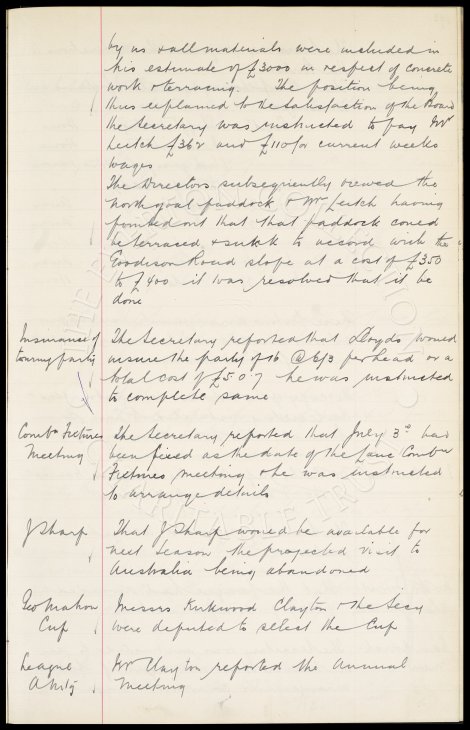 by us & all materials were included in
his estimate of £3000 in respect of concrete
work & terracing. The position being
thus explained to the satisfaction of the Board
the Secretary was instructed to pay Mr
Leitch £362 and £110 for current weeks
wages
The Directors subsequently viewed the
North goal paddock & Mr Leitch having
pointed out that that paddock could
be terraced & sunk to accord with the
Goodison Road slope at a cost of £350
to £400 it was resolved that it be
done
Insurance of
touring party
The Secretary reported that Lloyds would
insure the party of 16 @ 6/3 per head or a
total cost of £5.0.7 he was instructed
to complete same
Combn Fixtures
Meeting
The Secretary reported that July 3rd had
been fixed as the date of the Lanc Combn
Fixtures meeting & he was instructed
to arrange details
J Sharp
That J Sharp would be available for
next season the projected visit to
Australia being abandoned
Geo Mahon
Cup
Messrs Kirkwood Clayton & the Secy
were deputed to select the Cup
League
A Mtg
Mr Clayton reported the Annual
Meeting